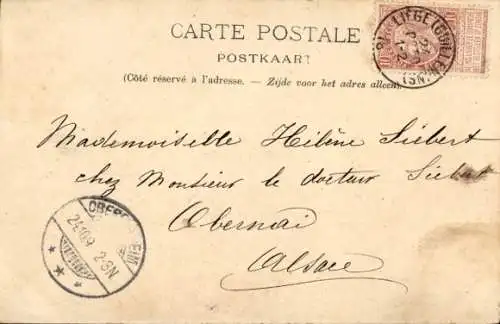 CARTE POSTALE
POSTKAART
(Côté réservé à l'adresse. — Zijde voor het adres alleen).
LIÉGE (GUILLEMINS)
10
10
Mademoiselle Hélène Siebert
chez Monsieur le docteur Siebert
Obernai
Alsace
24.10.9 2-3N